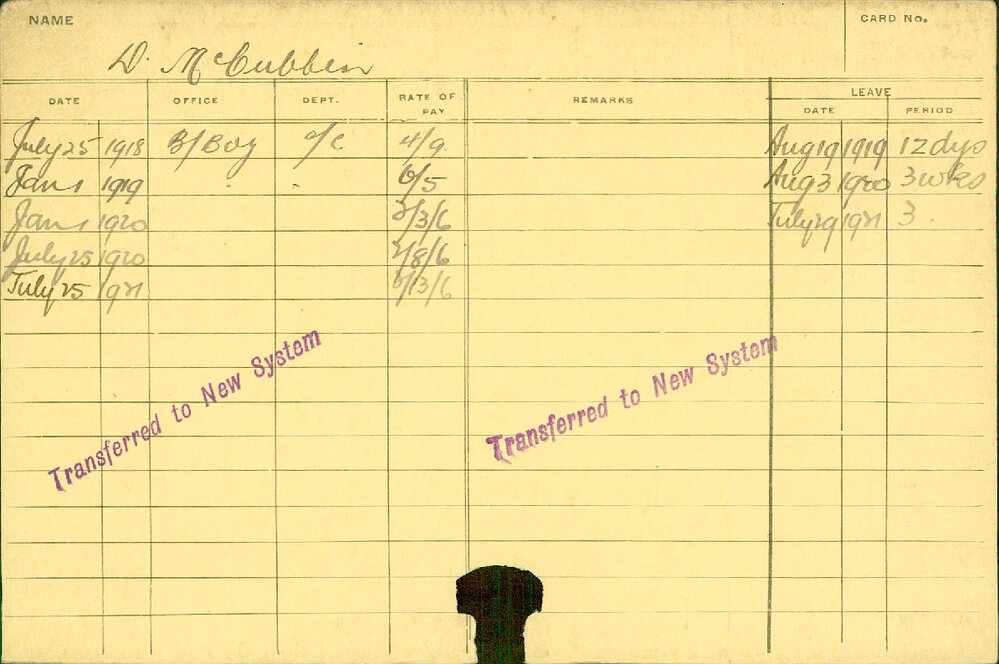 NAME
CARD No.
D. McCubbin
DATE OFFICE DEPT. RATE OF PAY REMARKS LEAVE DATE PERIOD
July 25 1918 B/Boy 4/9 Aug 19 1919 12 dys
Jan 1 1919 " " 6/5 Aug 3 1920 3 wks
Jan 1 1920 /3/6 July 29 1921 3 .
July 25 1920 /8/6
July 25 1921 /13/6
Transferred to New System
Transferred to New System